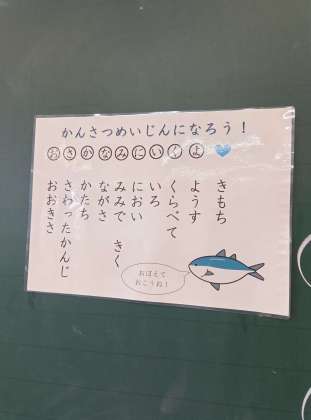 かんさつめいじんになろう！
おさかなみにいくよ
きもち
ようす
くらべて
いろ
におい
みみで きく
ながさ
かたち
さわったかんじ
おおきさ
おぼえて
おこうね！